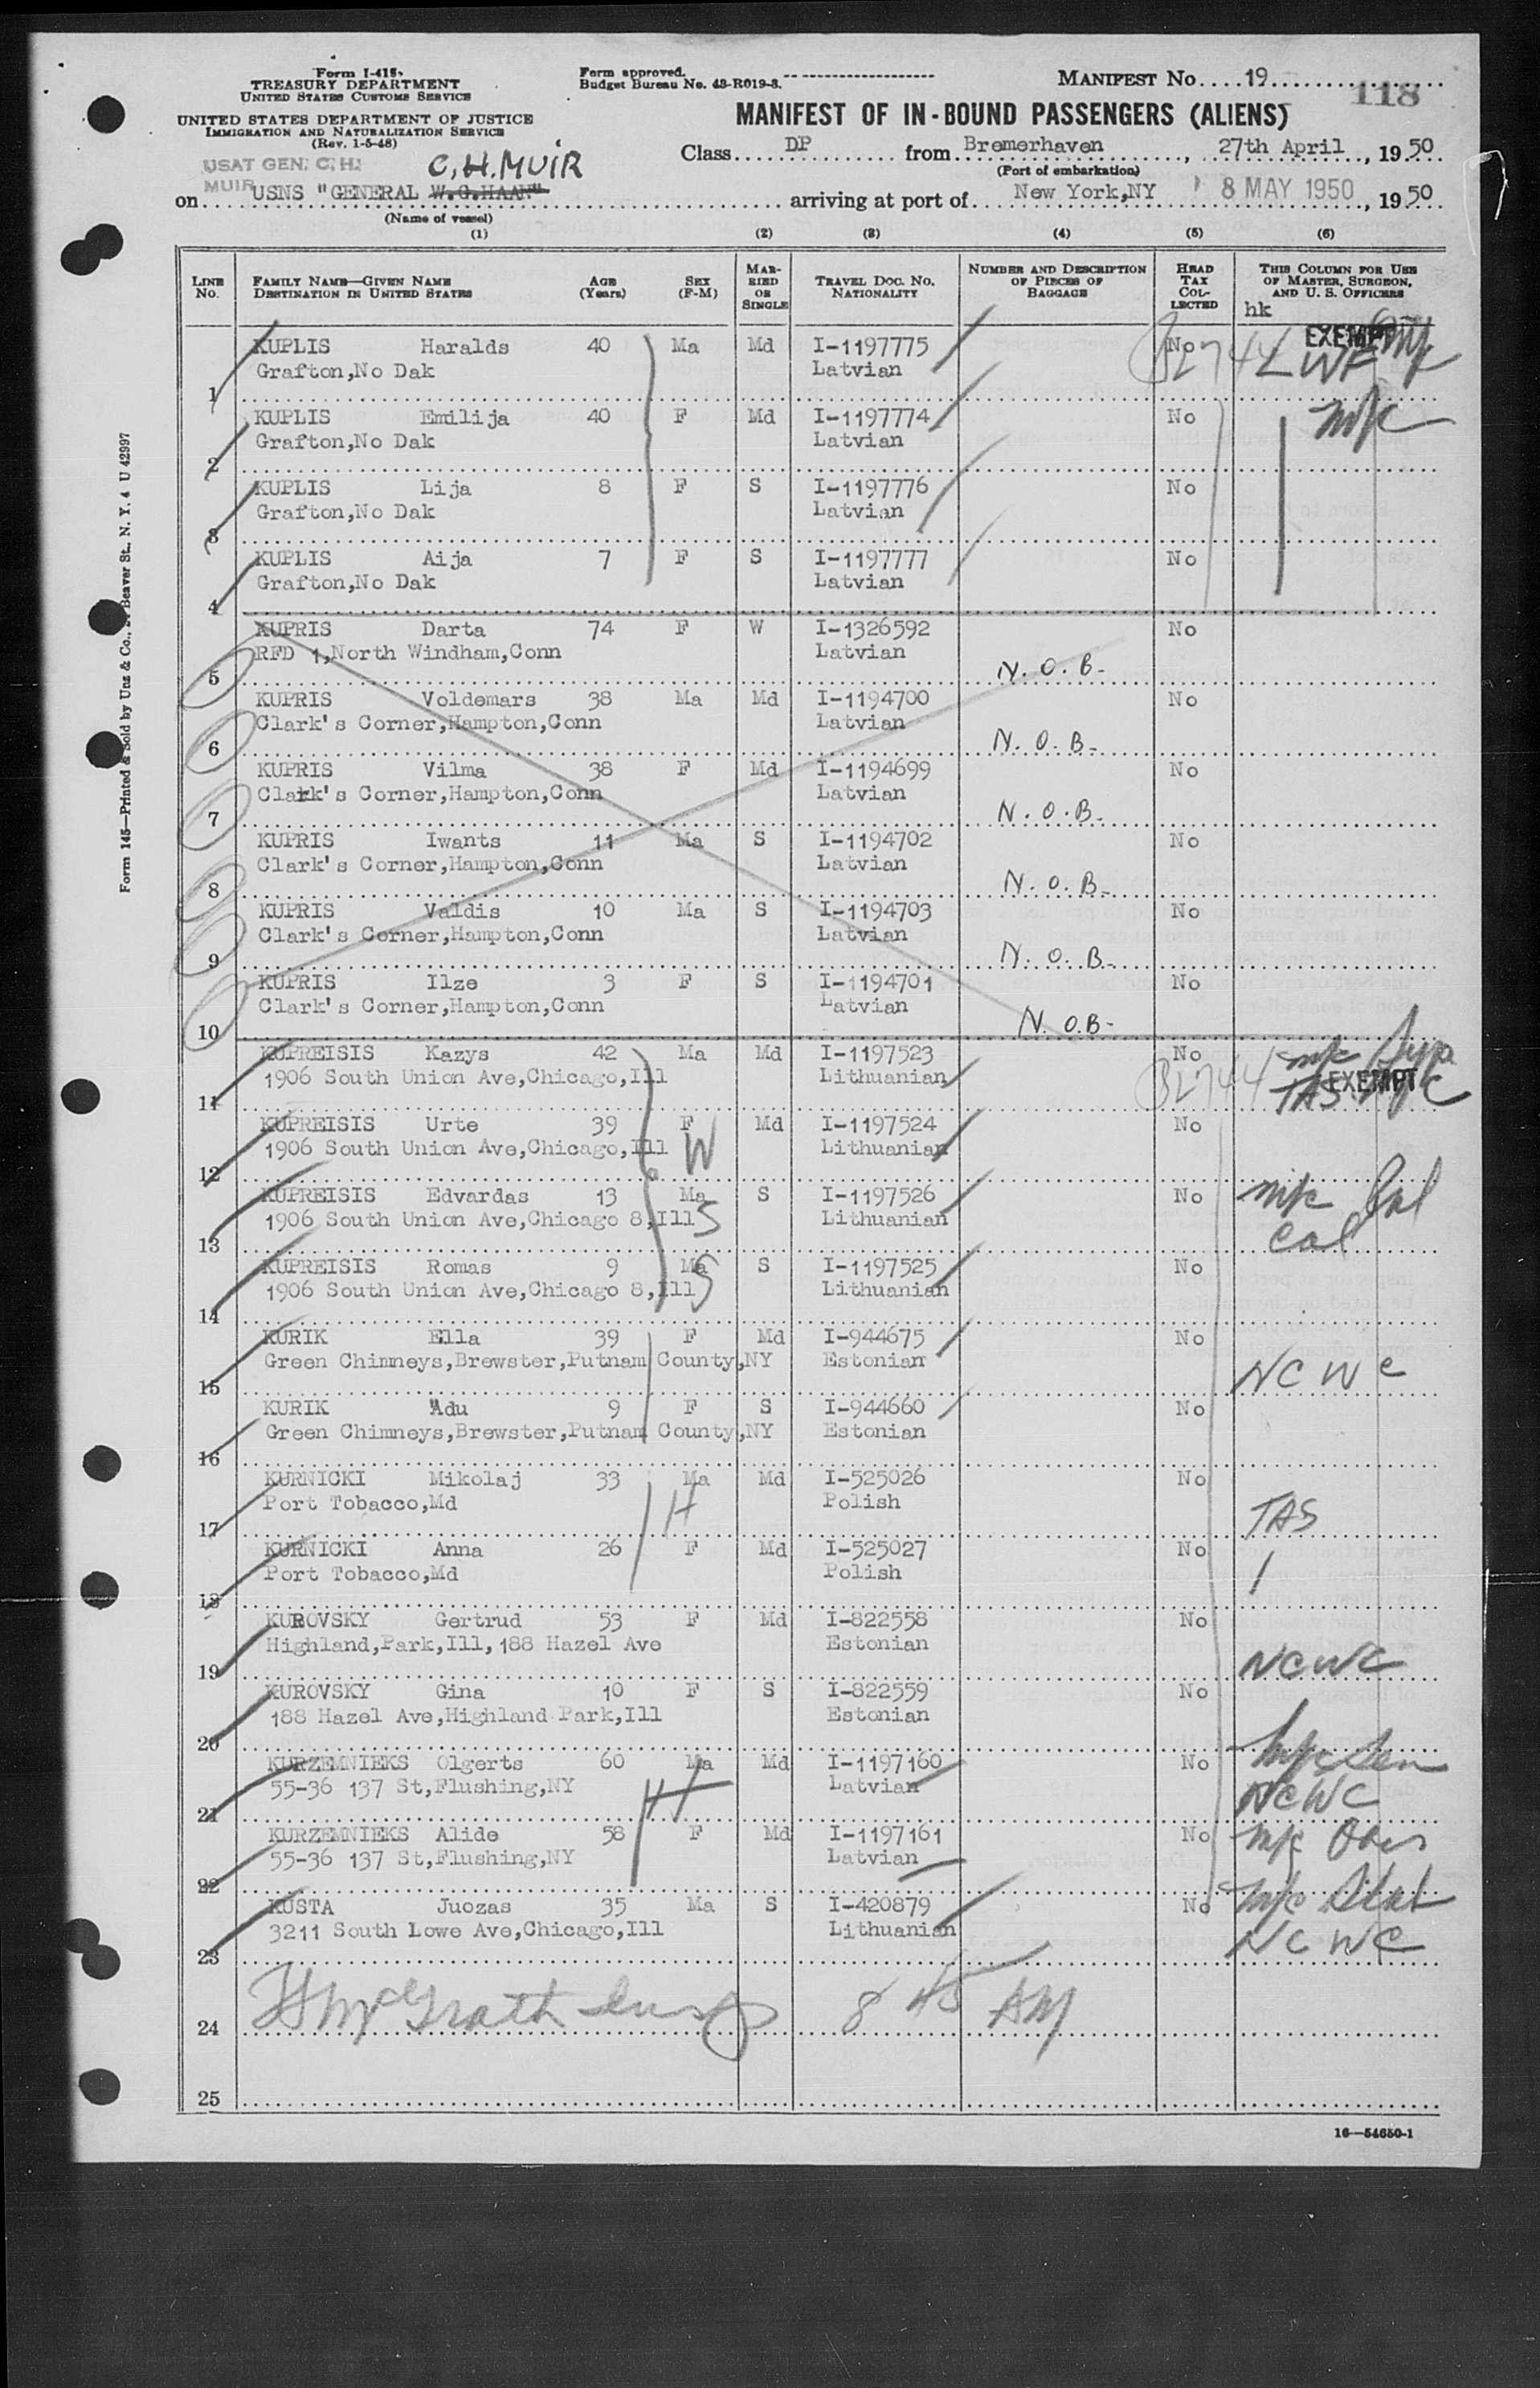 Form I-415
TREASURY DEPARTMENT
UNITED STATES CUSTOMS SERVICE
UNITED STATES DEPARTMENT OF JUSTICE
IMMIGRATION AND NATURALIZATION SERVICE
(Rev. 1-5-48)
Form approved.
Budget Bureau No. 43-R019-3.
MANIFEST NO. 19
118
MANIFEST OF IN-BOUND PASSENGERS (ALIENS)
Class DP from Bremerhaven, 27th April, 1950
(Port of embarkation)
USAT GEN. C. H. MUIR
C.H.MUIR
on USNS "GENERAL W.G.HAAN" arriving at port of New York,NY 8 MAY 1950, 1950
(Name of vessel)
(1) (2) (3) (4) (5) (6)
LINE NO. FAMILY NAME—GIVEN NAME DESTINATION IN UNITED STATES AGE (Years) SEX (F-M) MARRIED OR SINGLE TRAVEL DOC. NO. NATIONALITY NUMBER AND DESCRIPTION OF PIECES OF BAGGAGE HEAD TAX COLLECTED THIS COLUMN FOR USE OF MASTER, SURGEON, AND U. S. OFFICERS
hk
KUPLIS Haralds 40 Ma Md I-1197775 No EXEMPT
1 Grafton,No Dak Latvian LWF
KUPLIS Emilija 40 F Md I-1197774 No
2 Grafton,No Dak Latvian
KUPLIS Lija 8 F S I-1197776 No
3 Grafton,No Dak Latvian
KUPLIS Aija 7 F S I-1197777 No
4 Grafton,No Dak Latvian
KUPRIS Darta 74 F W I-1326592 No
5 RFD 1,North Windham,Conn Latvian N.O.B.
KUPRIS Voldemars 38 Ma Md I-1194700 No
6 Clark's Corner,Hampton,Conn Latvian N.O.B.
KUPRIS Vilma 38 F Md I-1194699 No
7 Clark's Corner,Hampton,Conn Latvian N.O.B.
KUPRIS Iwants 11 Ma S I-1194702 No
8 Clark's Corner,Hampton,Conn Latvian N.O.B.
KUPRIS Valdis 10 Ma S I-1194703 No
9 Clark's Corner,Hampton,Conn Latvian N.O.B.
KUPRIS Ilze 3 F S I-1194701 No
10 Clark's Corner,Hampton,Conn Latvian N.O.B.
KUPREISIS Kazys 42 Ma Md I-1197523 No
11 1906 South Union Ave,Chicago,Ill Lithuanian TAS EXEMPT
KUPREISIS Urte 39 F Md I-1197524 No
12 1906 South Union Ave,Chicago,Ill W Lithuanian
KUPREISIS Edvardas 13 Ma S I-1197526 No
13 1906 South Union Ave,Chicago 8,Ill S Lithuanian
KUPREISIS Romas 9 Ma S I-1197525 No
14 1906 South Union Ave,Chicago 8,Ill S Lithuanian
KURIK Ella 39 F Md I-944675 No
15 Green Chimneys,Brewster,Putnam County,NY Estonian NCWC
KURIK Adu 9 F S I-944660 No
16 Green Chimneys,Brewster,Putnam County,NY Estonian
KURNICKI Mikolaj 33 Ma Md I-525026 No
17 Port Tobacco,Md H Polish TAS
KURNICKI Anna 26 F Md I-525027 No
18 Port Tobacco,Md Polish
KUROVSKY Gertrud 53 F Md I-822558 No
19 Highland,Park,Ill,188 Hazel Ave Estonian NCWC
KUROVSKY Gina 10 F S I-822559 No
20 188 Hazel Ave,Highland Park,Ill Estonian
KURZEMNIEKS Olgerts 60 Ma Md I-1197160 No
21 55-36 137 St,Flushing,NY H Latvian NCWC
KURZEMNIEKS Alide 58 F Md I-1197161 No
22 55-36 137 St,Flushing,NY Latvian
KUSTA Juozas 35 Ma S I-420879 No
23 3211 South Lowe Ave,Chicago,Ill Lithuanian NCWC
24 McGrath 8 45 AM
25
16—54650-1
Form 145—Printed & Sold by Unz & Co., Beaver St., N. Y. 4 U 42997